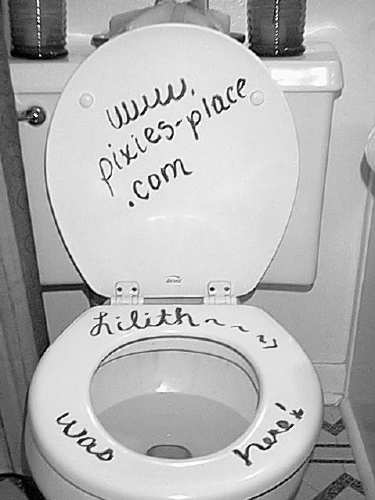 www.
pixies-place
.com
Lilith~~~
was
here!